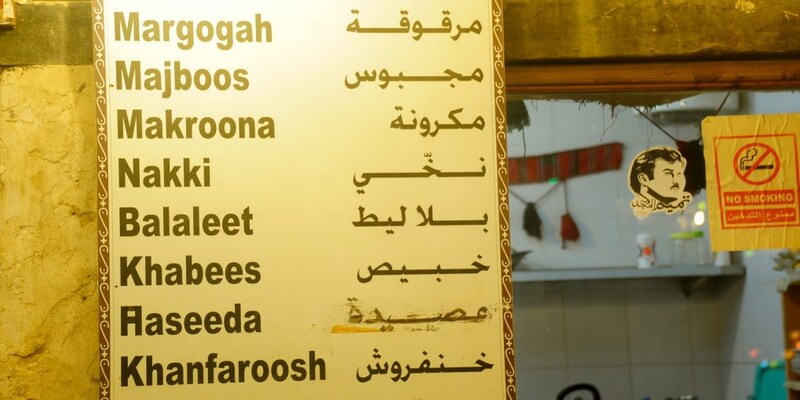 Margogah مرقوقة
Majboos مجبوس
Makroona مكرونة
Nakki نخّي
Balaleet بلاليط
Khabees خبيص
Haseeda عصيدة
Khanfaroosh خنفروش
تميم المجد
NO SMOKING
ممنوع التدخين